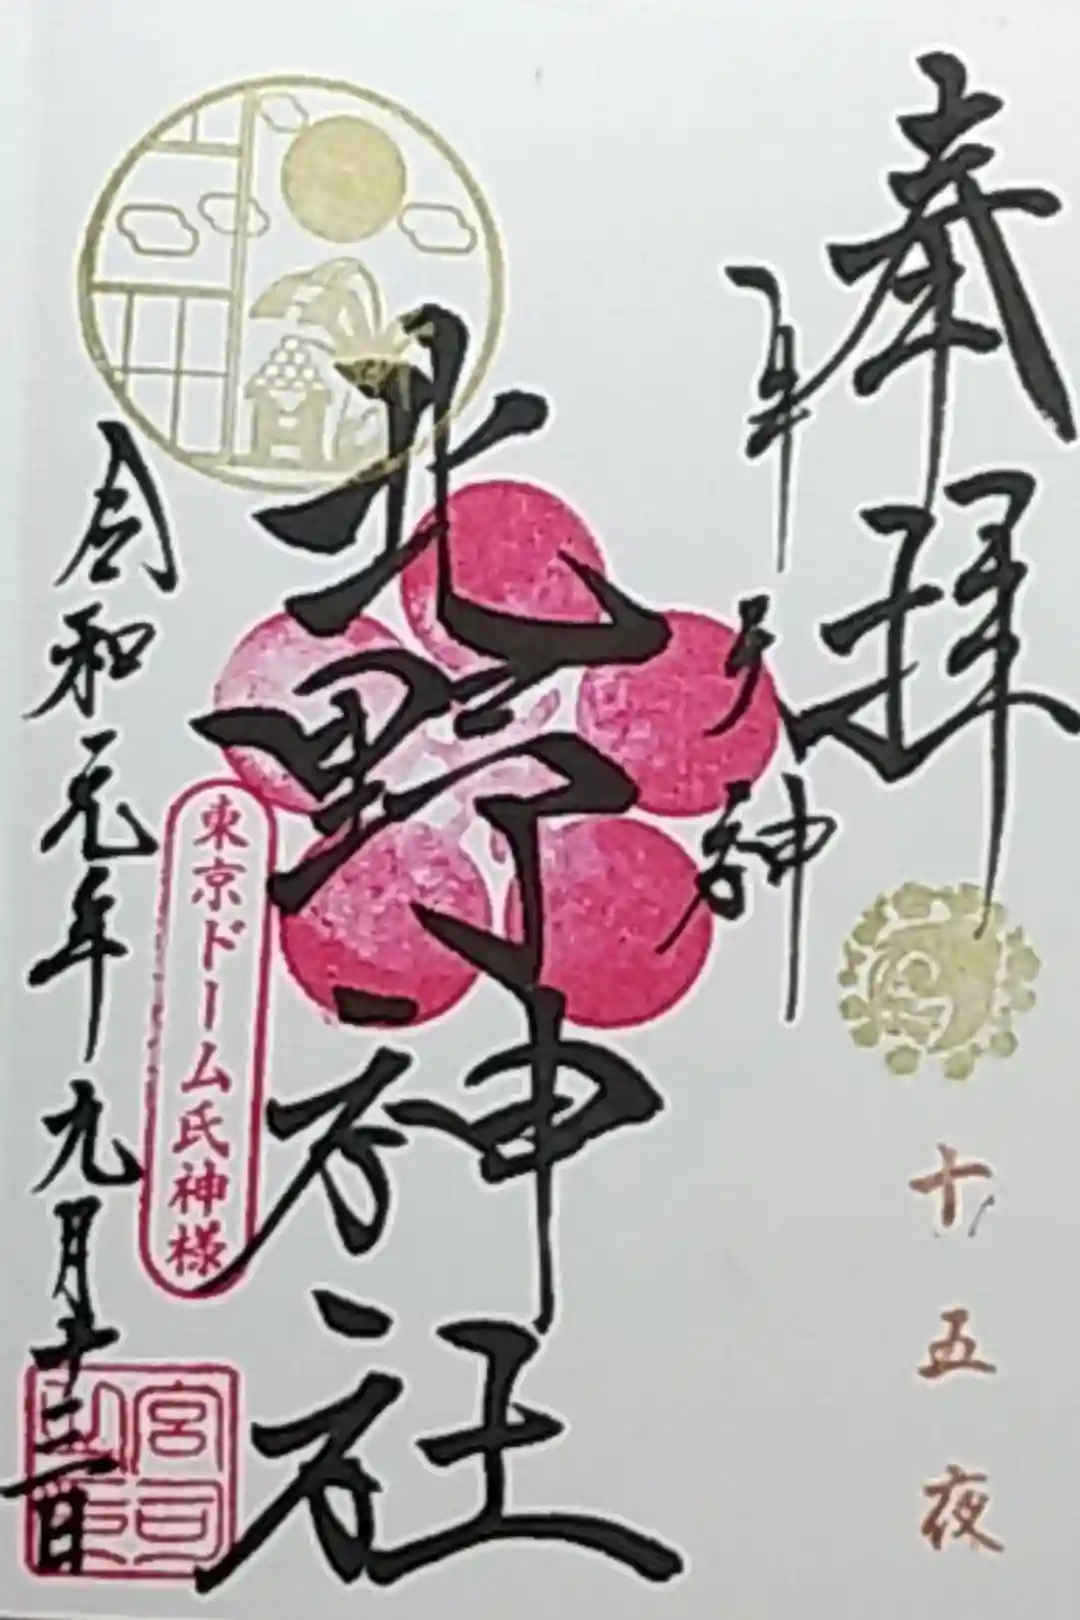 奉拝
十五夜
牛天神
北野神社
東京ドーム氏神様
令和元年九月十三日
宮司之印